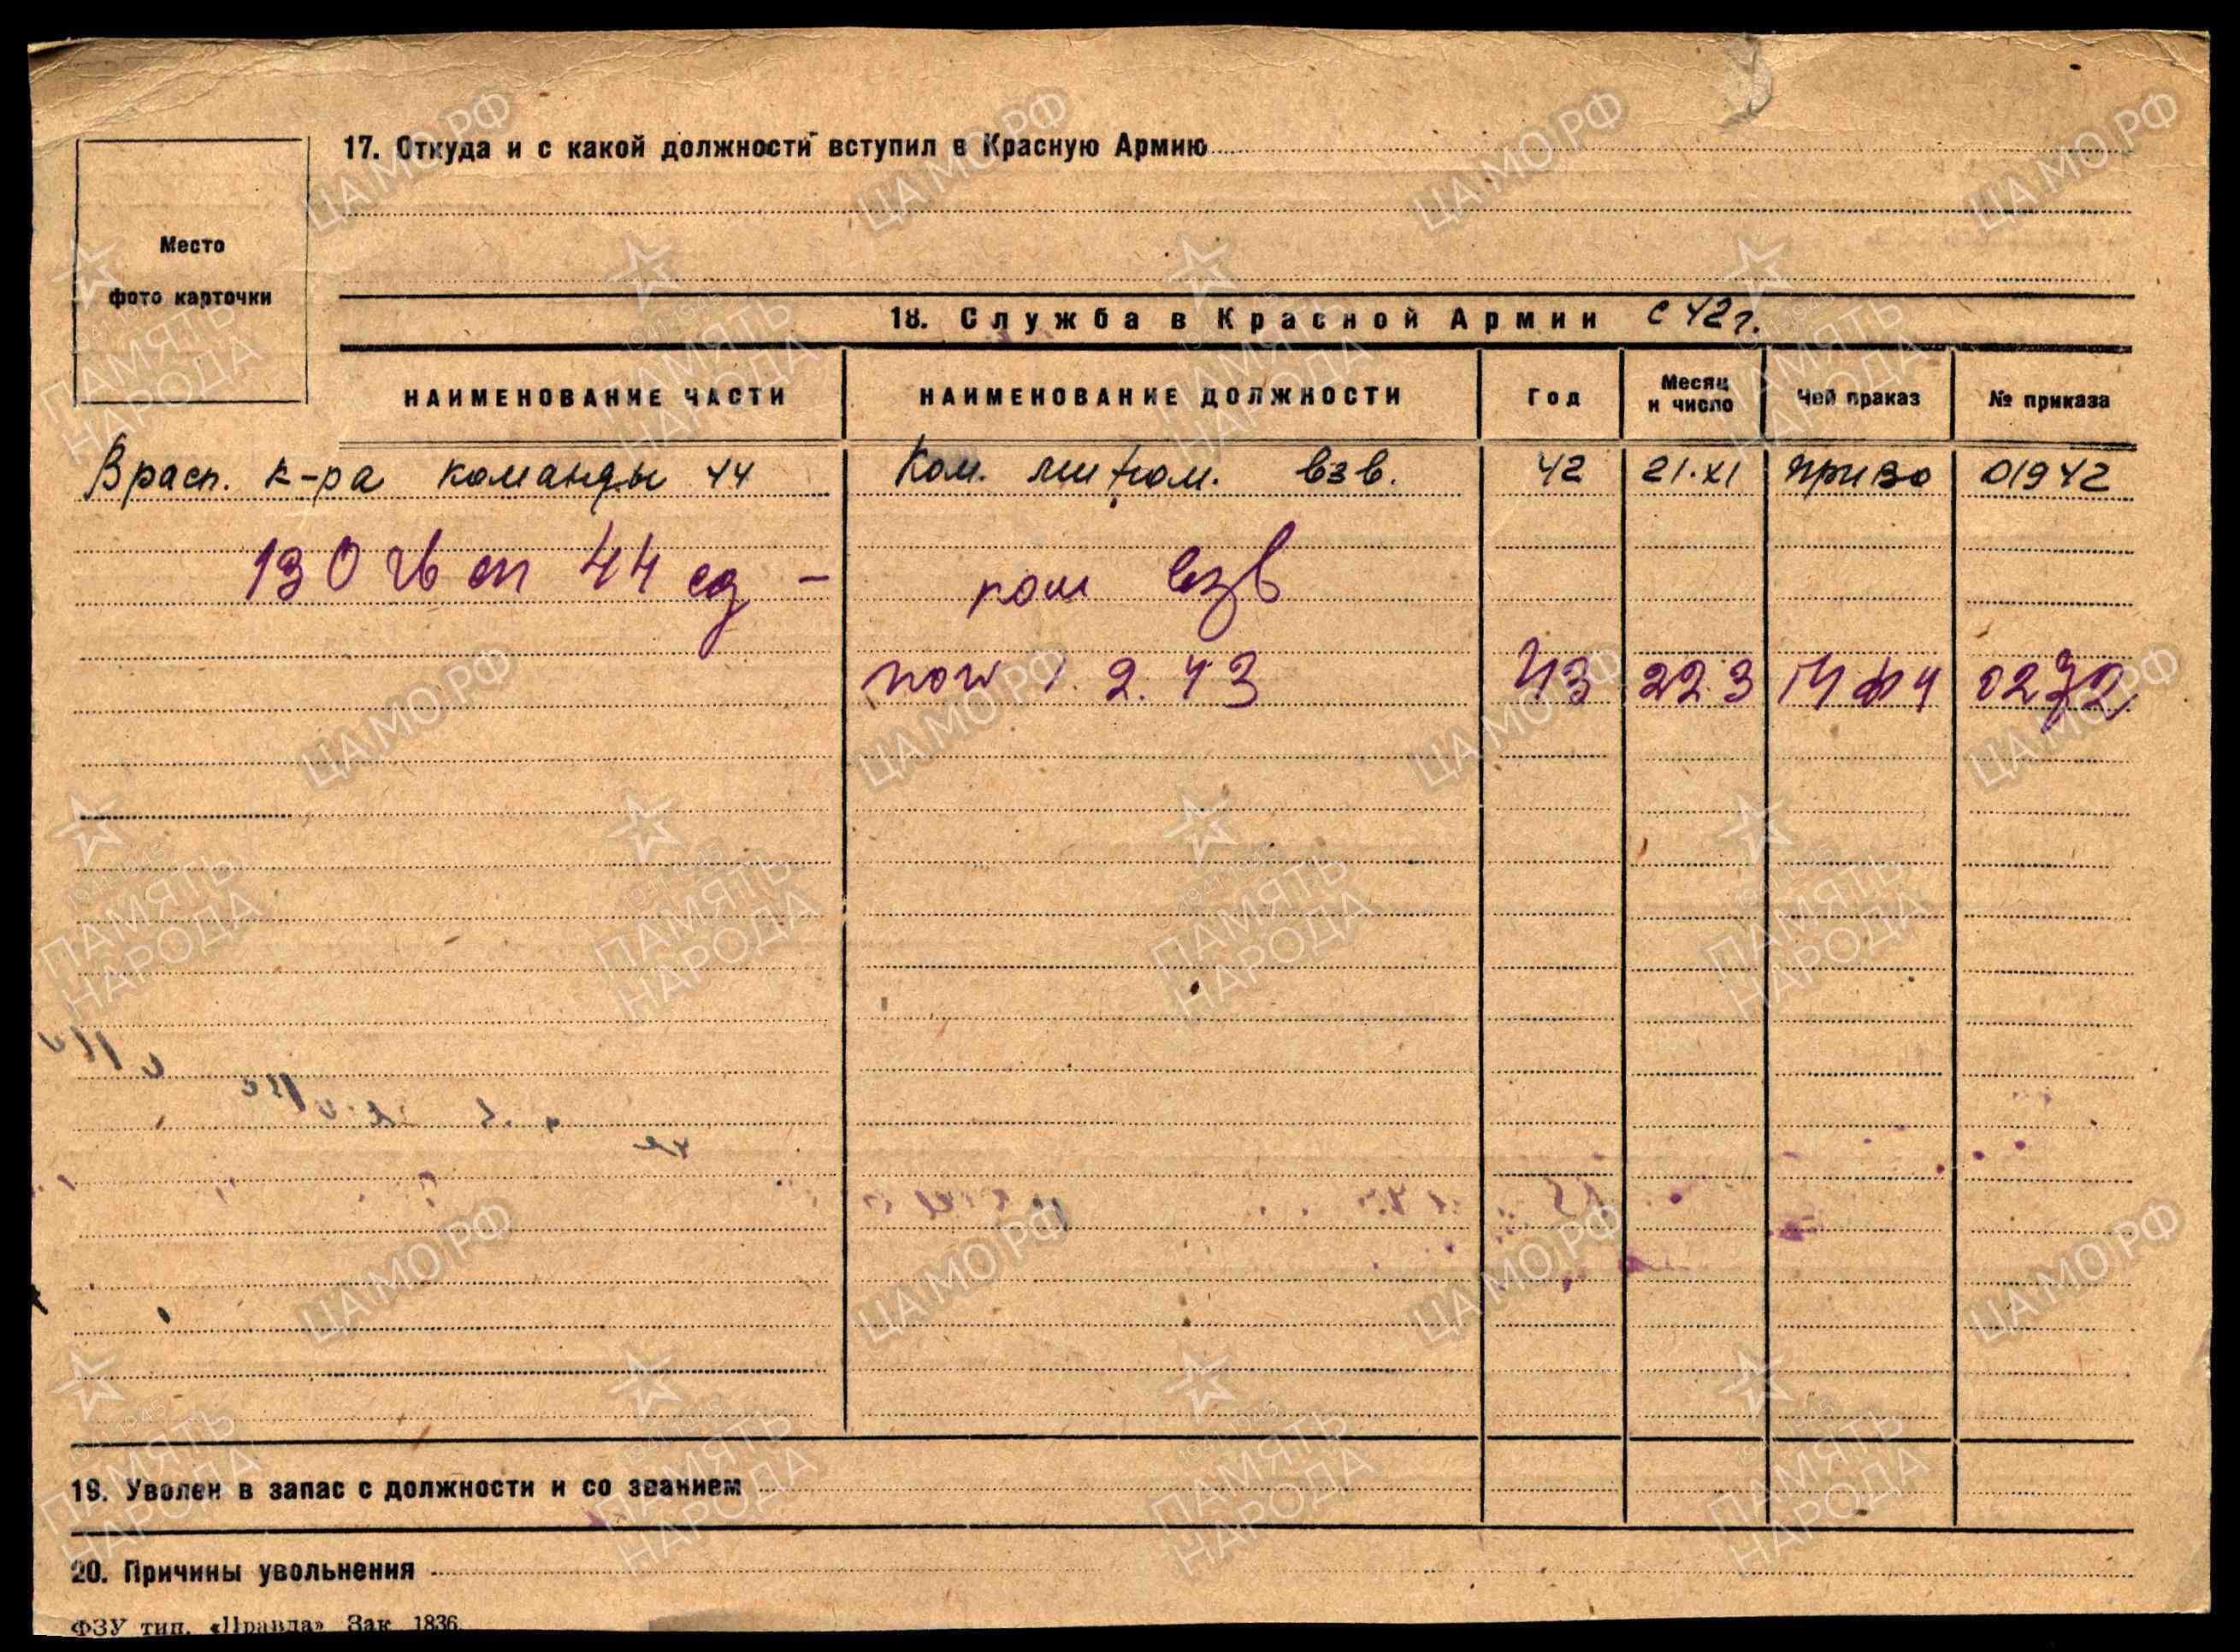 17. Откуда и с какой должности вступил в Красную Армию
Место
фото карточки
18. Служба в Красной Армии с 42 г.
НАИМЕНОВАНИЕ ЧАСТИ НАИМЕНОВАНИЕ ДОЛЖНОСТИ Год Месяц и число Чей приказ № приказа
В расп. к-ра команды 44 Ком. взв. 42 21.XI приво 01942
130 гв сп 44 сд - ком взв
1.2.43 43 22.3 0272
19. Уволен в запас с должности и со званием
20. Причины увольнения
ФЗУ тип. «Правда» Зак 1836
ЦАМО.РФ
1941-1945
ПАМЯТЬ
НАРОДА